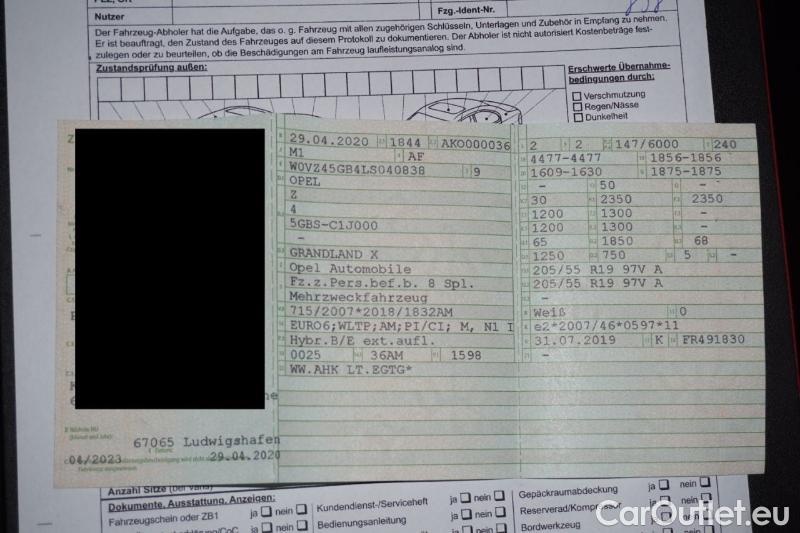 Nutzer
Fzg.-Ident-Nr.
Der Fahrzeug-Abholer hat die Aufgabe, das o. g. Fahrzeug mit allen zugehörigen Schlüsseln, Unterlagen und Zubehör in Empfang zu nehmen.
Er ist beauftragt, den Zustand des Fahrzeuges auf diesem Protokoll zu dokumentieren. Der Abholer ist nicht autorisiert Kostenbeträge fest-
zulegen oder zu beurteilen, ob die Beschädigungen am Fahrzeug laufleistungsanalog sind.
Zustandsprüfung außen:
Erschwerte Übernahme-
bedingungen durch:
Verschmutzung
Regen/Nässe
Dunkelheit
29.04.2020 1844 AKO000036 2 2 147/6000 240
M1 AF 4477-4477 1856-1856
W0VZ45GB4LS040838 9 1609-1630 1875-1875
OPEL - 50 -
Z 30 2350 2350
4 1200 1300 -
5GBS-C1J000 1200 1300 -
- 65 1850 68
GRANDLAND X 1250 750 5 -
Opel Automobile 205/55 R19 97V A
Fz.z.Pers.bef.b. 8 Spl. 205/55 R19 97V A
Mehrzweckfahrzeug -
715/2007*2018/1832AM Weiß 0
EURO6;WLTP;AM;PI/CI; M, N1 I e2*2007/46*0597*11
Hybr.B/E ext.aufl. 31.07.2019 K FR491830
0025 36AM 1598 -
WW.AHK LT.EGTG*
67065 Ludwigshafen
04/2023 29.04.2020
Anzahl Sitze
Dokumente, Ausstattung, Anzeigen:
Fahrzeugschein oder ZB1 ja nein
Kundendienst-/Serviceheft ja nein
Bedienungsanleitung ja nein
Gepäckraumabdeckung ja nein
Reserverad/Kompressor ja nein
Bordwerkzeug
CarOutlet.eu